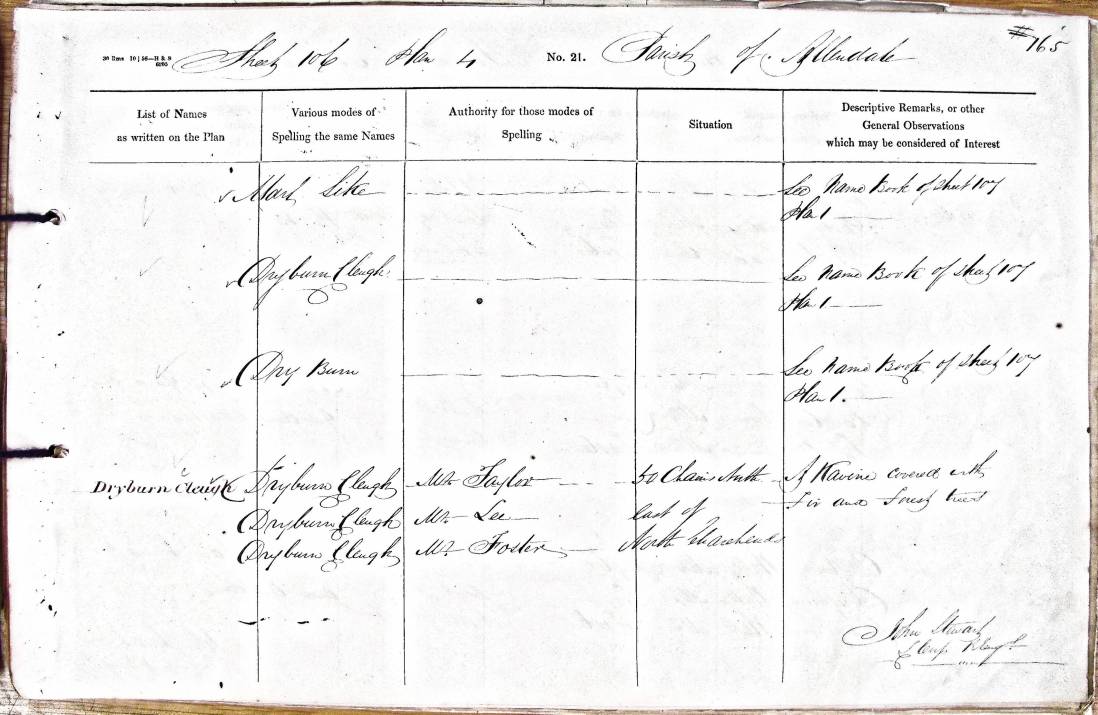 165
30 Rms 10 | 56—H & S
6205
Sheet 106 Plan 4 No. 21. Parish of Allendale
List of Names
as written on the Plan
Various modes of
Spelling the same Names
Authority for those modes of
Spelling
Situation
Descriptive Remarks, or other
General Observations
which may be considered of Interest
Sike See Name Book of Sheet 107
Plan 1
Dryburn Cleugh See Name Book of Sheet 107
Plan 1
Dry Burn See Name Book of Sheet 107
Plan 1.
Dryburn Cleugh Dryburn Cleugh Mr. Taylor 50 Chains North A Ravine covered with
Dryburn Cleugh Mr. Lee east of Fir and Forest trees
Dryburn Cleugh Mr. Foster North
John Stewart